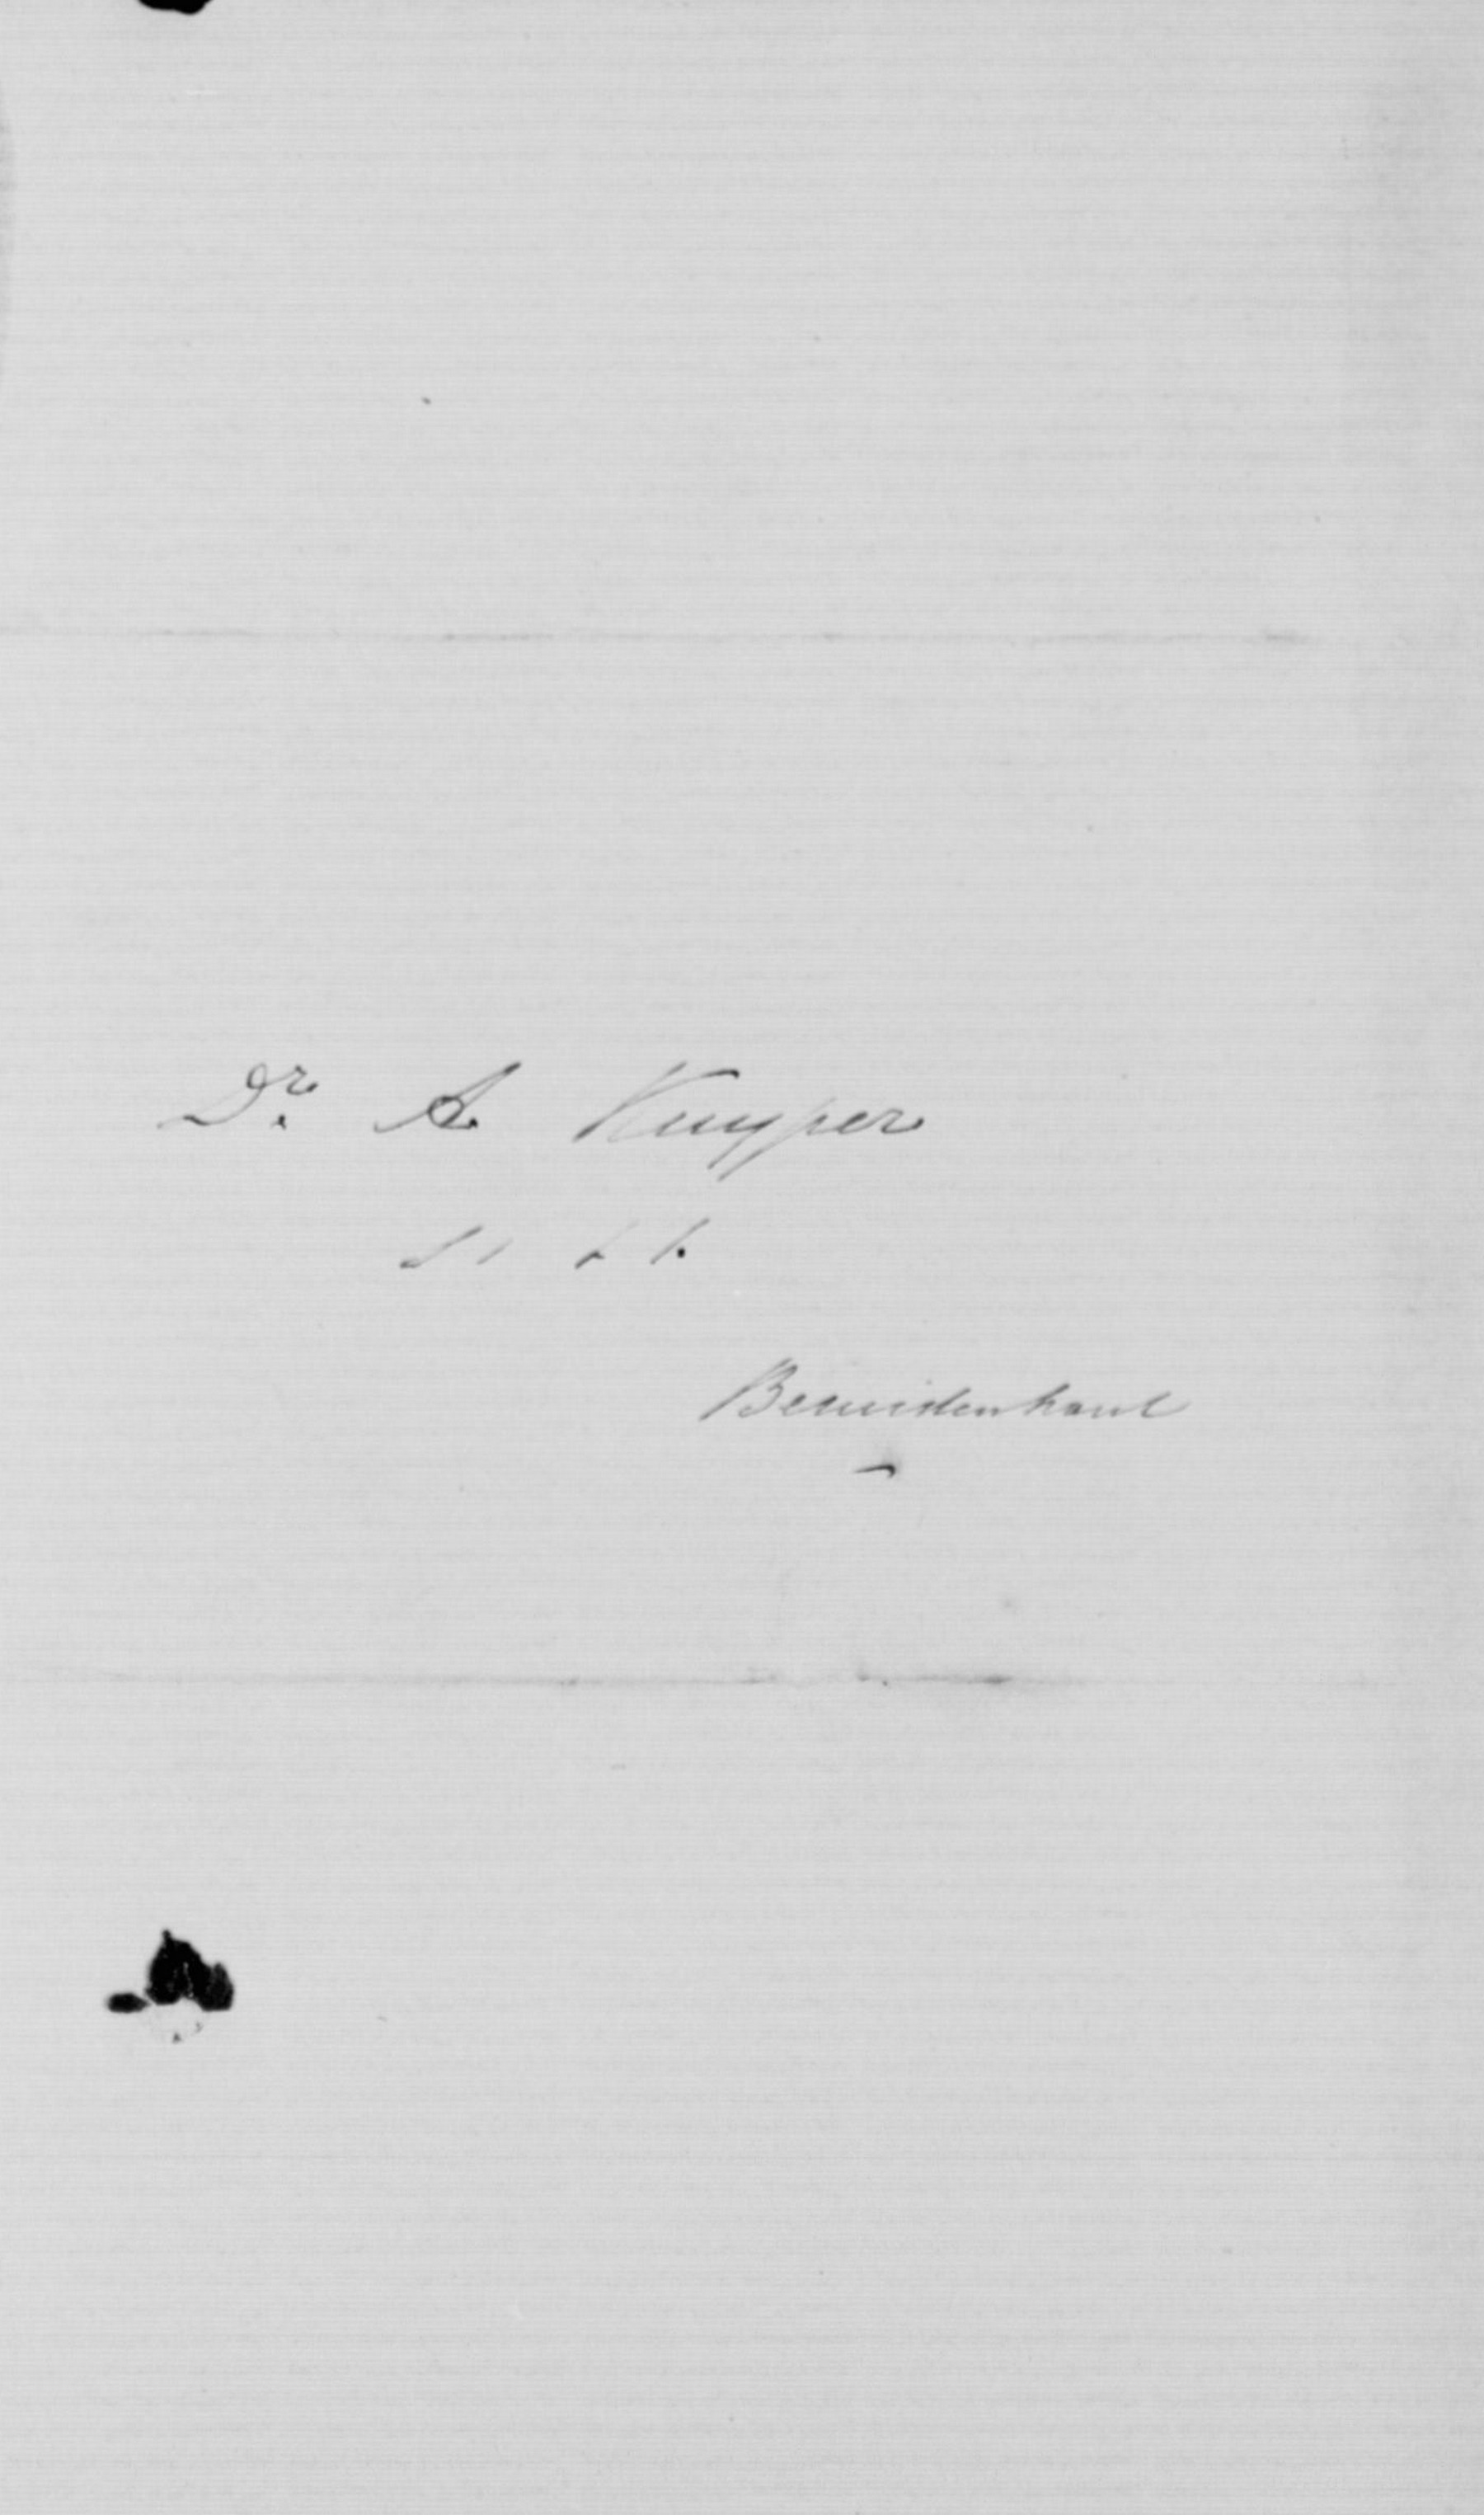 Dr. A Kuyper
Bezuidenhout